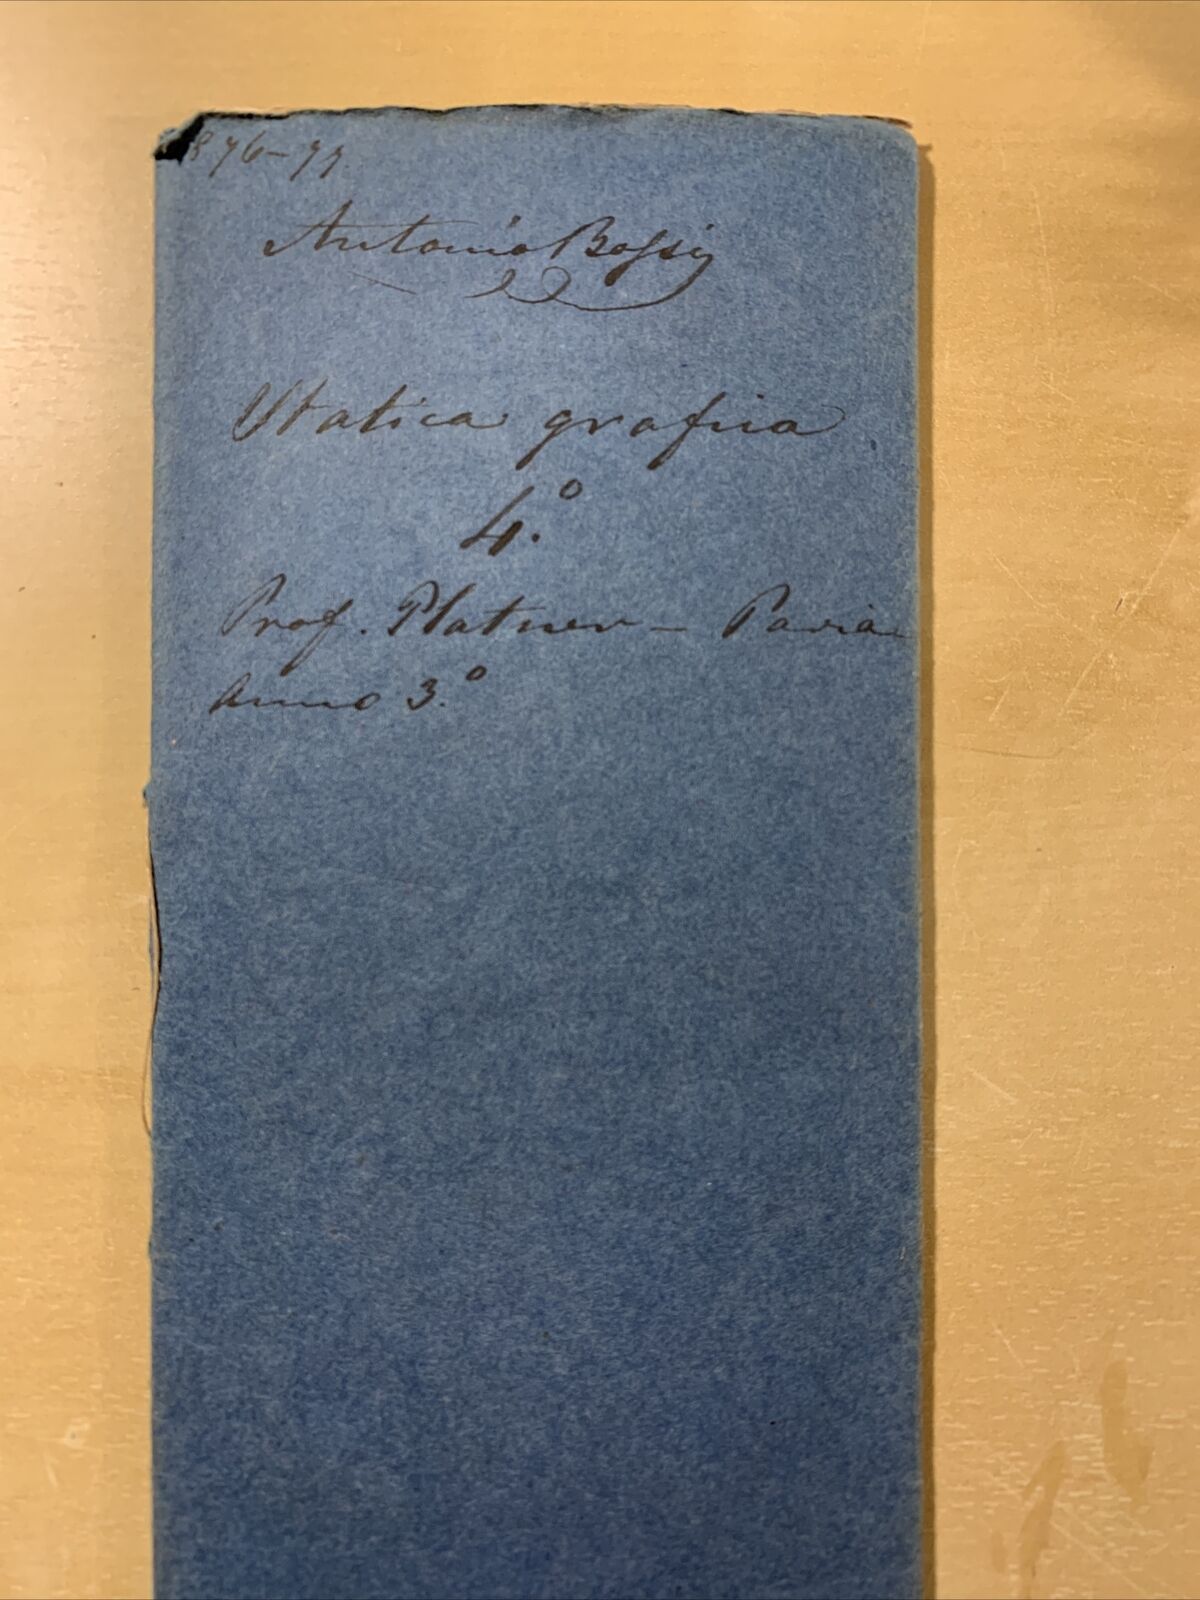 1876-77
Antonio Bossi
Statica grafica
4.°
Prof. Platner - Pavia
Anno 3.°